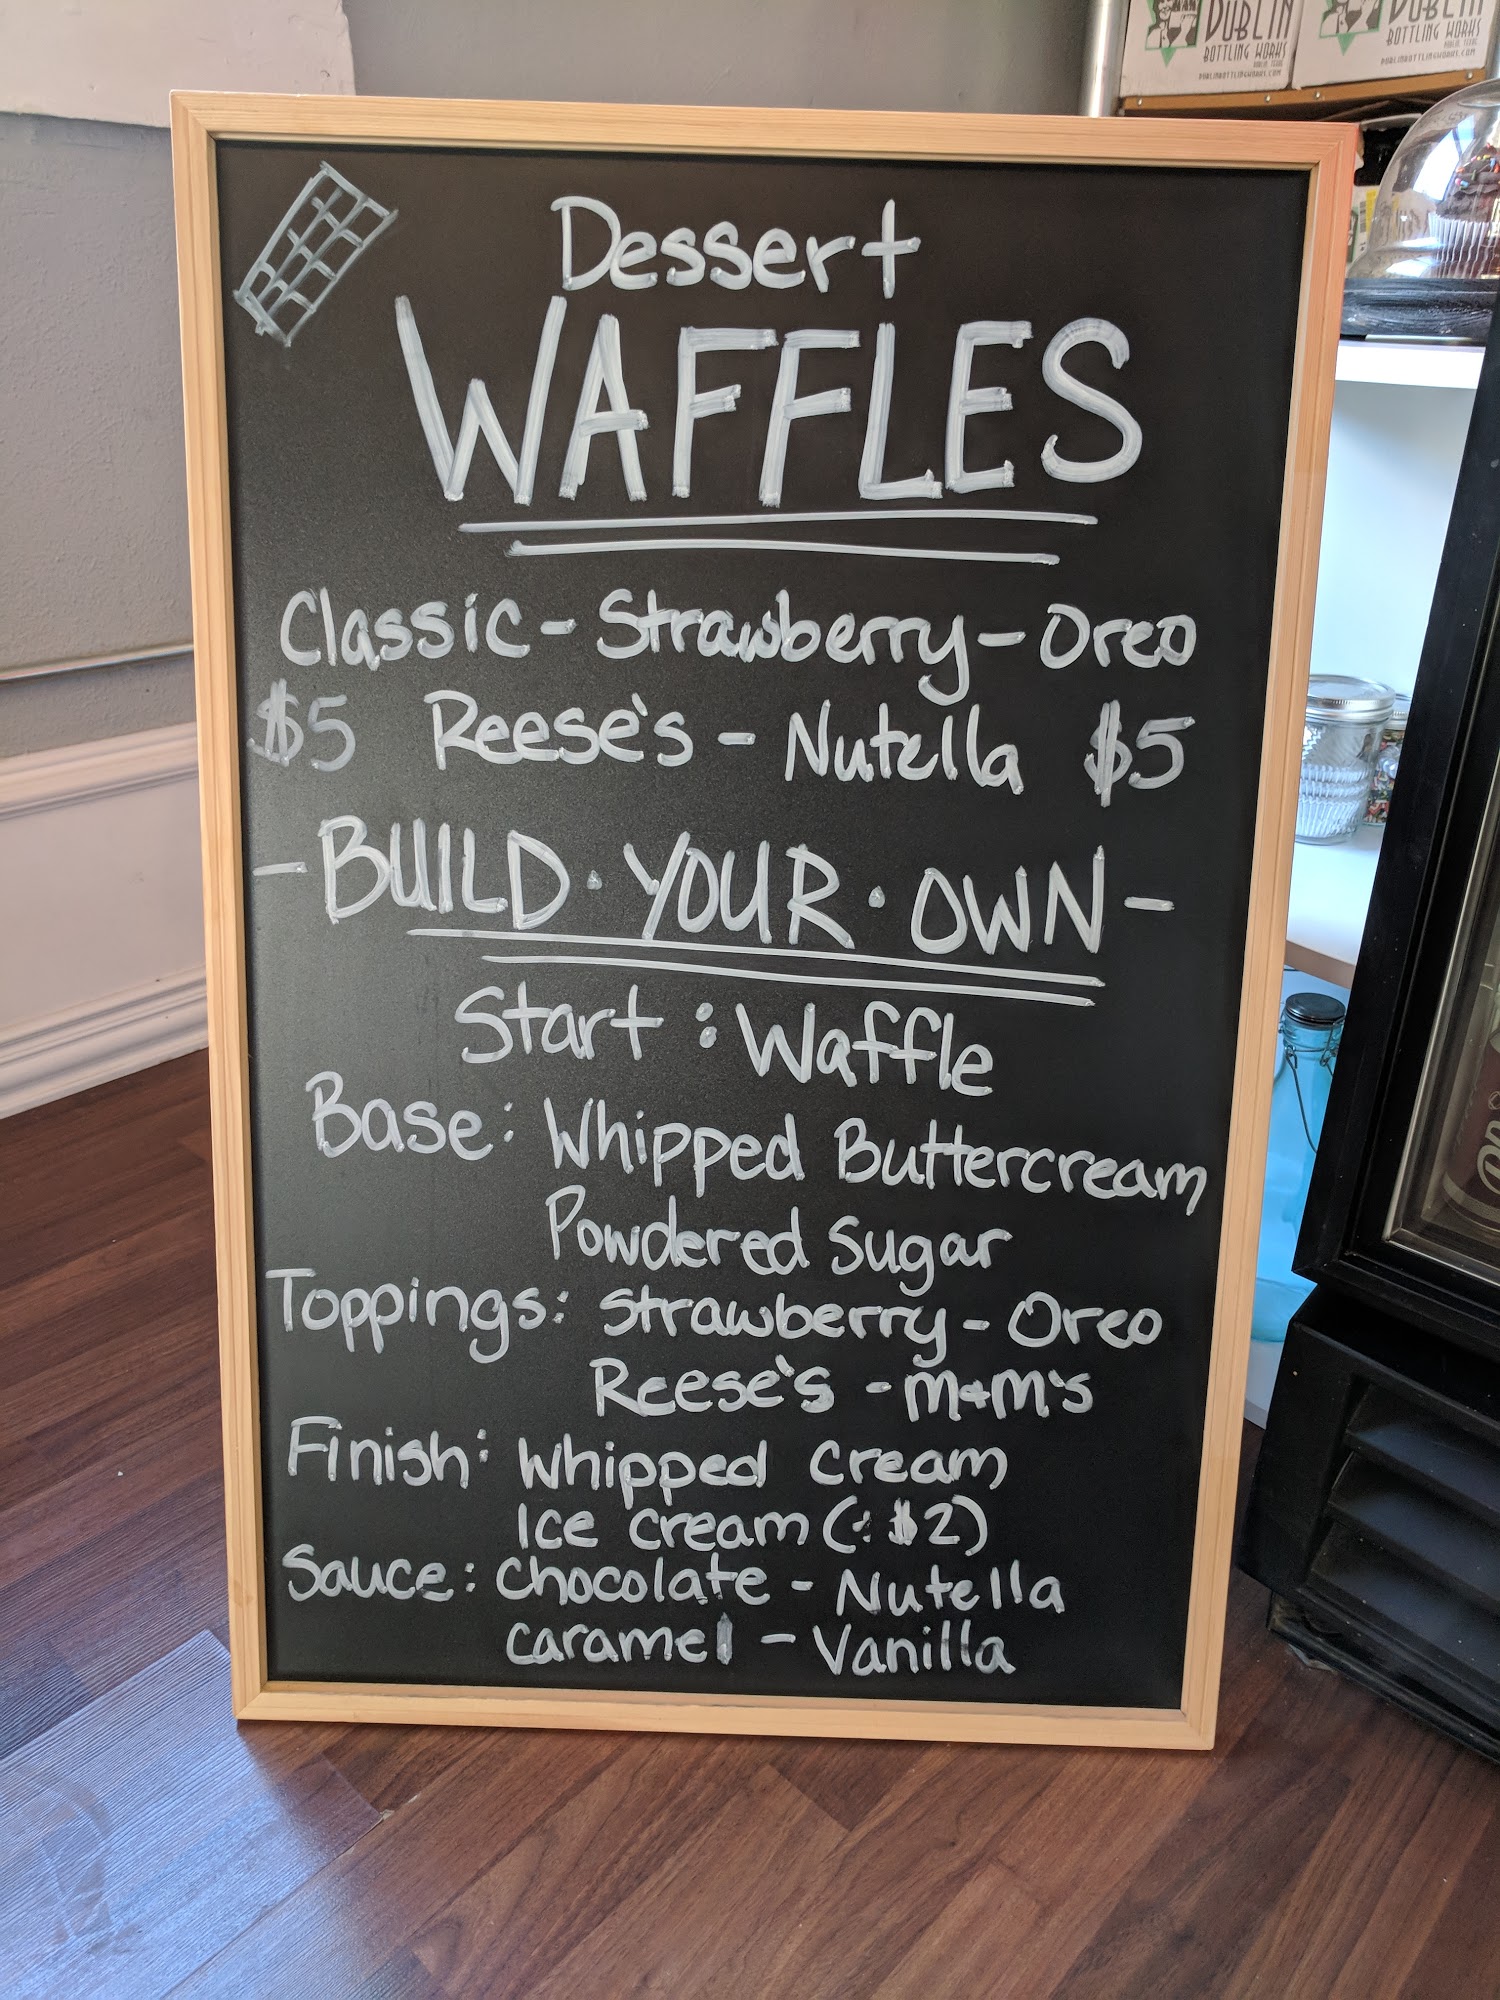 DUBLIN
BOTTLING WORKS
DUBLIN, TEXAS
DUBLINBOTTLINGWORKS.COM
DUBLIN
BOTTLING WORKS
DUBLIN, TEXAS
DUBLINBOTTLINGWORKS.COM
Dessert
WAFFLES
Classic - Strawberry - Oreo
$5 Reese's - Nutella $5
- BUILD · YOUR · OWN -
Start : Waffle
Base: Whipped Buttercream
Powdered Sugar
Toppings: Strawberry - Oreo
Reese's - m+m's
Finish: Whipped cream
Ice cream (+$2)
Sauce: Chocolate - Nutella
caramel - Vanilla